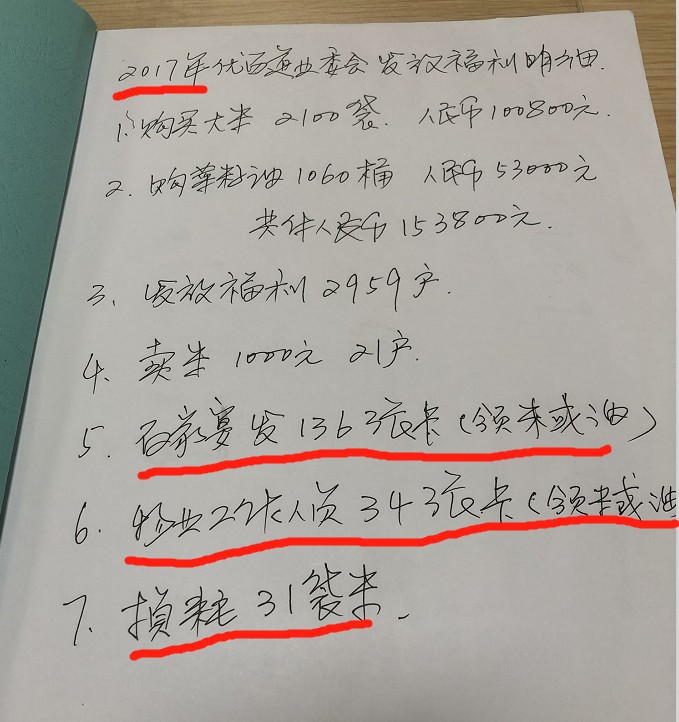 2017年优百道业委会发放福利明细.
1.购买大米 2100袋. 人民币100800元.
2.购菜籽油1060桶 人民币53000元
共计人民币153800元.
3、发放福利2959户.
4、卖米 1000元 21户.
5、百家宴发136张卡(领米或油)
6、物业工作人员34张卡(领米或油
7、损耗31袋米.